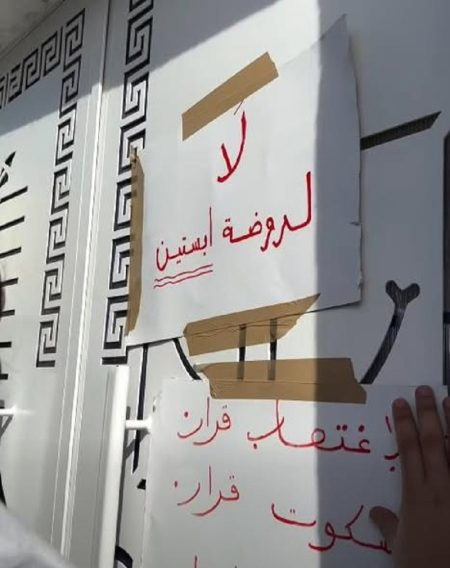 لَا
لروضة ابستين
الاغتصاب قرار
السكوت قرار